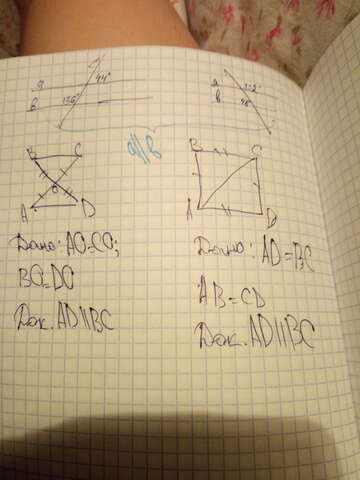 a 44°
в 136°
a 132°
в 48°
a||в
B C
O
A D
Дано: AO=CO;
BO=DO
Док. AD||BC
B C
A D
Дано: AD=BC
AB=CD
Док. AD||BC